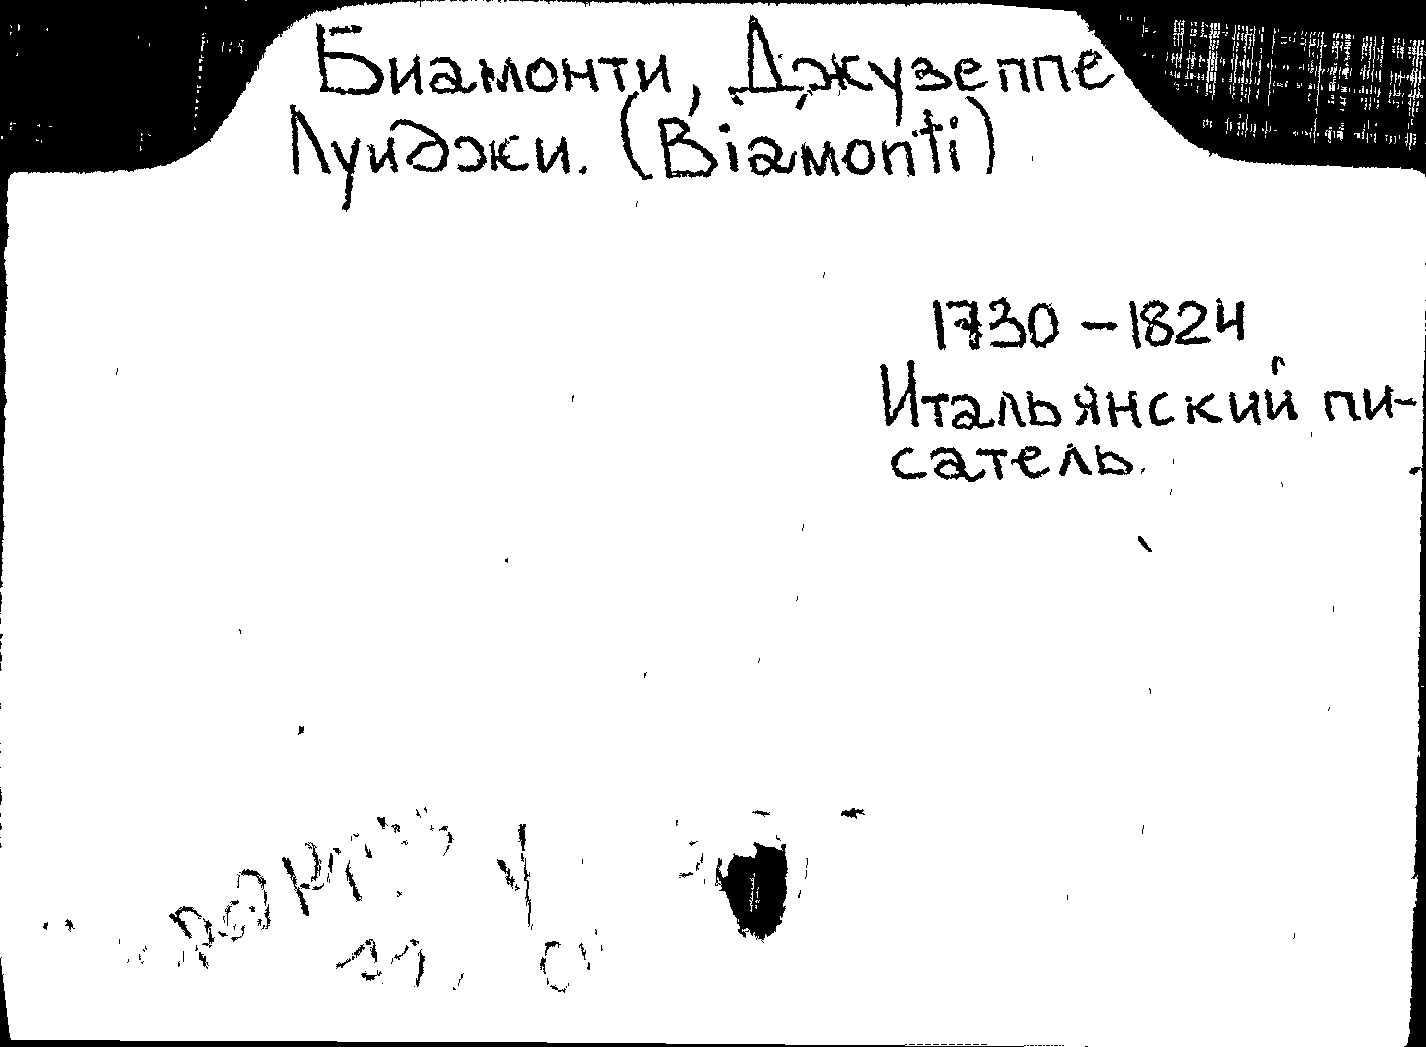 Биамонти, Джузеппе
Луиджи. (Biamonti)
1730 – 1824
Итальянский пи-
сатель.